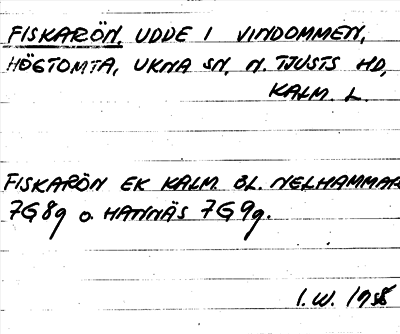 FISKARÖN, UDDE I VINDOMMEN,
HÖGTOMTA, UKNA SN, N. TJUSTS HD,
KALM. L.
FISKARÖN EK KALM. BL. NELHAMMAR
7G8g o. HANNÄS 7G9g.
I.W. 1958